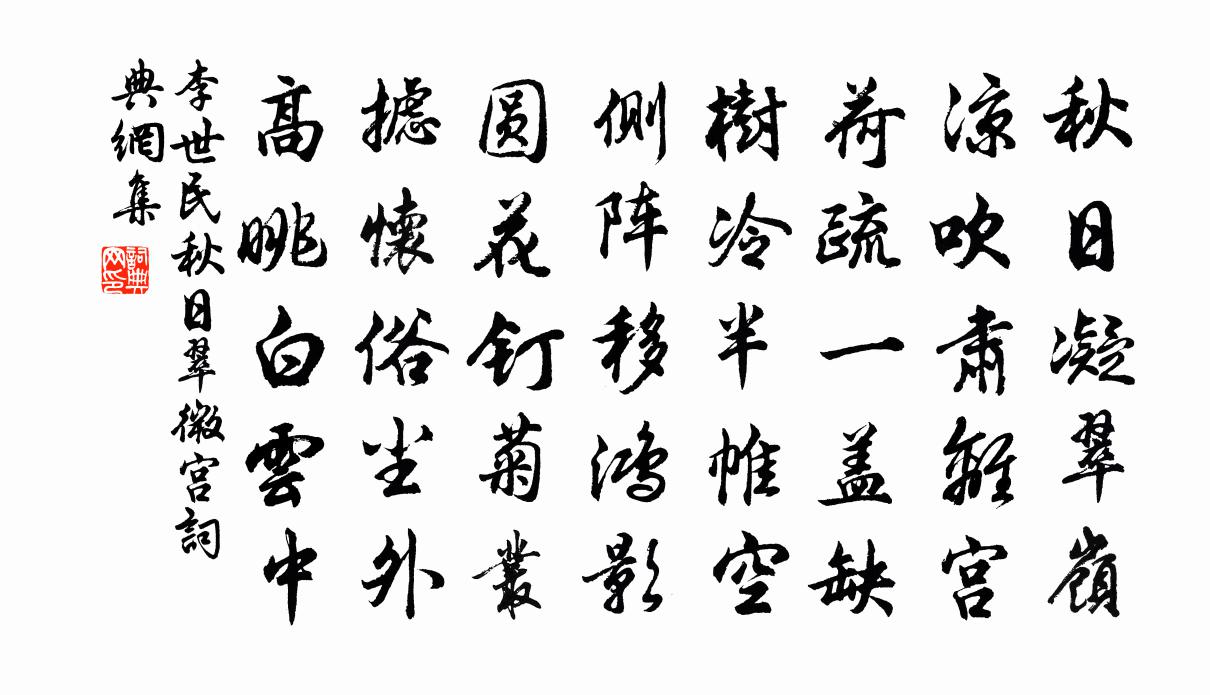 秋日凝翠嶺
涼吹肃離宫
荷疏一盖缺
樹冷半帷空
侧阵移鸿影
圆花钉菊叢
攄懷俗尘外
高眺白雲中
李世民秋日翠微宫詞
典網集
詞典
网印